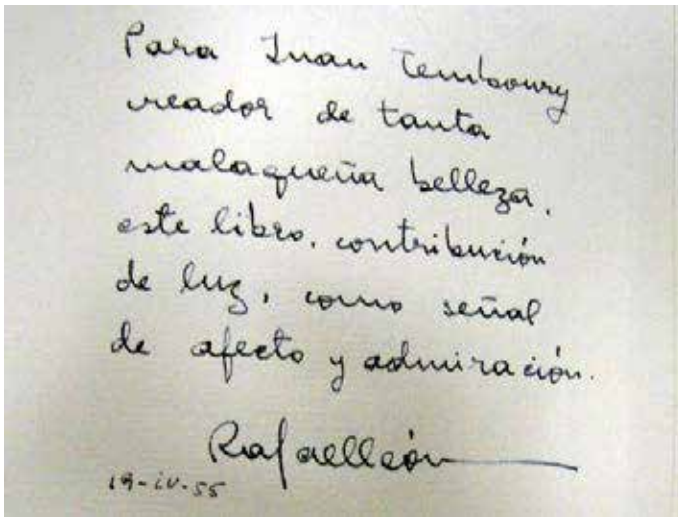 Para Juan Temboury
creador de tanta
malagueña belleza,
este libro, contribución
de luz, como señal
de afecto y admiración.
Rafael León
19-IV-55